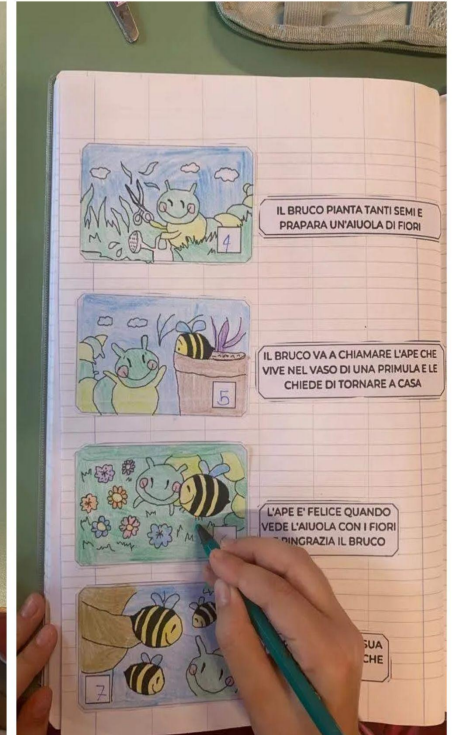 4
IL BRUCO PIANTA TANTI SEMI E
PRAPARA UN'AIUOLA DI FIORI
5
IL BRUCO VA A CHIAMARE L'APE CHE
VIVE NEL VASO DI UNA PRIMULA E LE
CHIEDE DI TORNARE A CASA
L'APE E' FELICE QUANDO
VEDE L'AIUOLA CON I FIORI
RINGRAZIA IL BRUCO
7
SUA
CHE